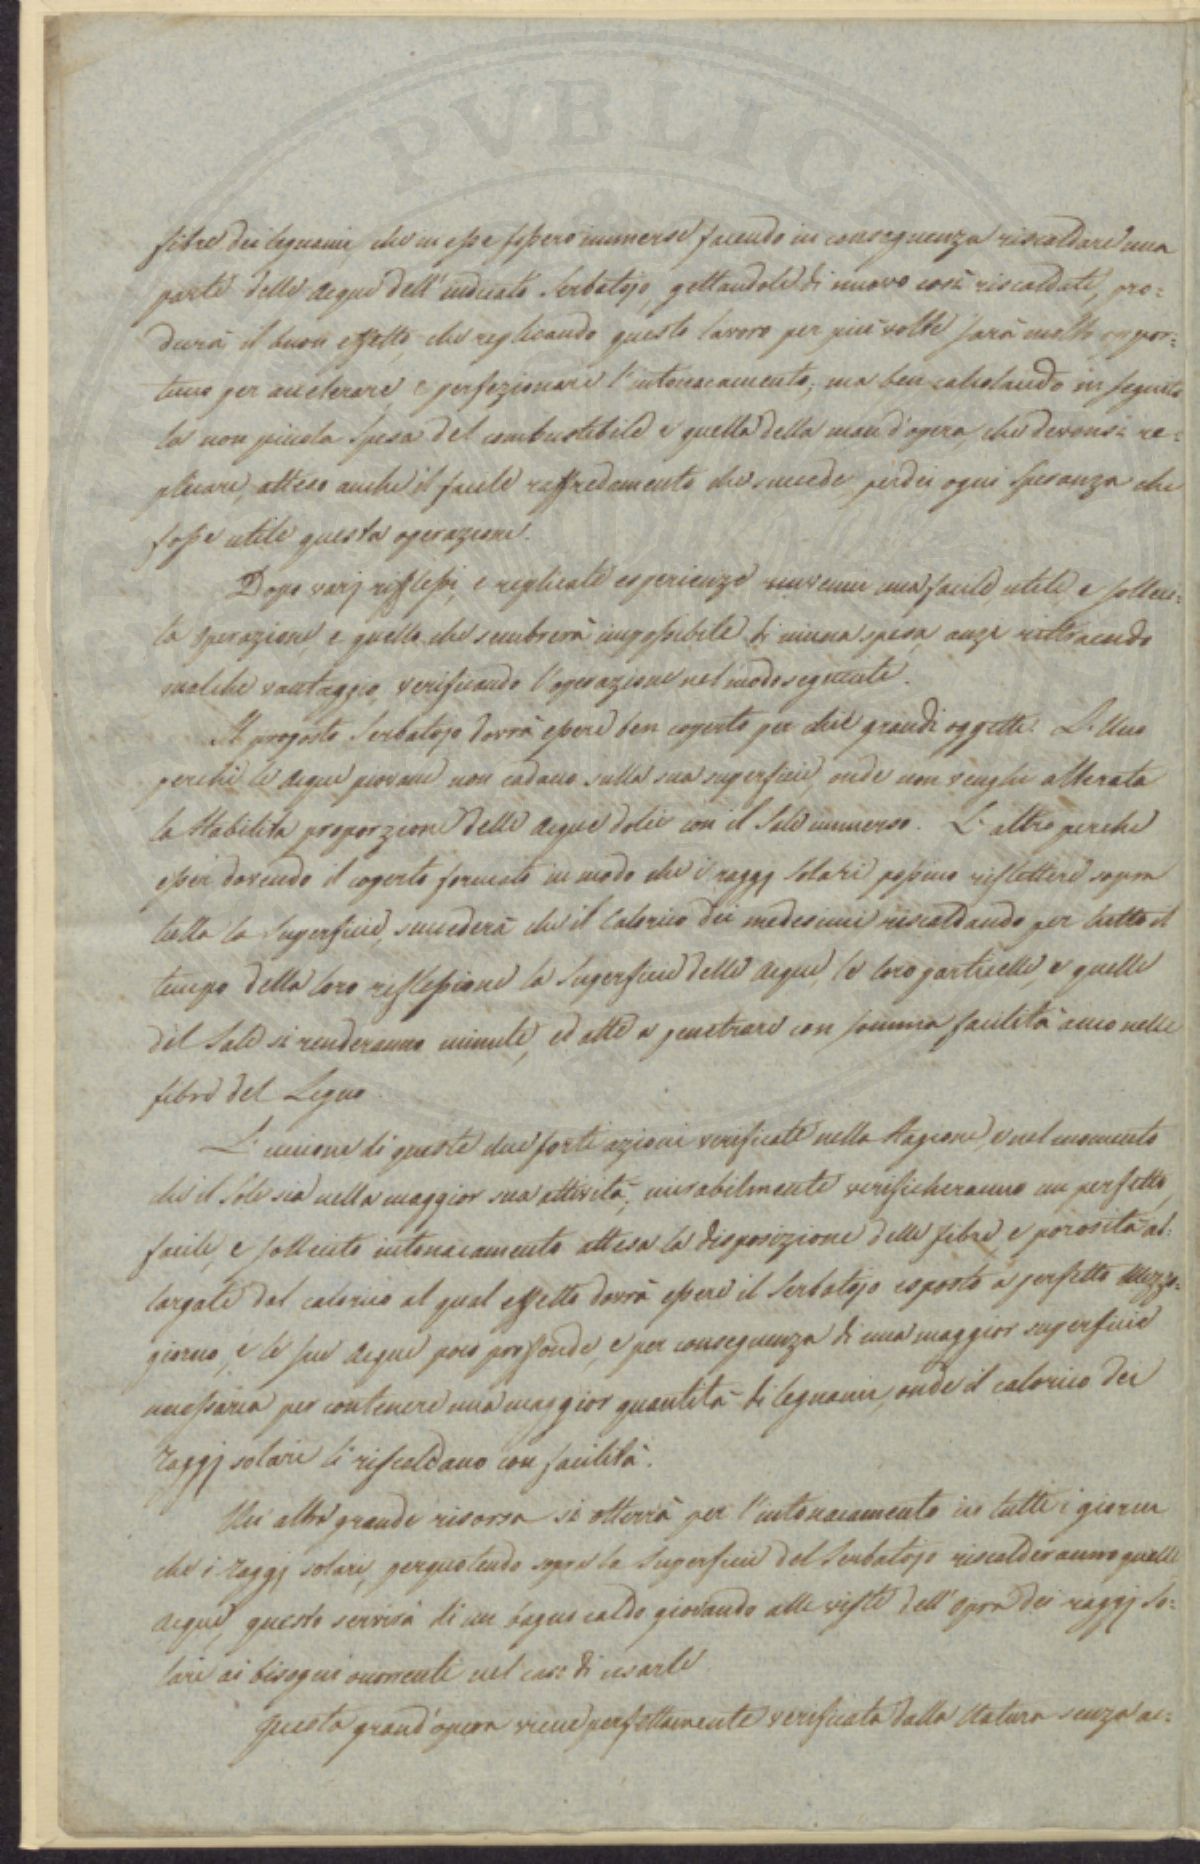 PVBLICA
fibre dei legnami che in esse fossero immerse facendo in conseguenza riscaldare una
parte delle Acque dell'indicato Serbatojo, gettandole di nuovo così riscaldate, pro=
durrà il buon effetto, che replicando questo lavoro per più volte sarà molto oppor=
tuno per accelerare e perfezionare l'intonacamento; ma ben calcolando in seguito
la non piccola spesa del combustibile e quella della man d'opera, che devonsi re=
plicare, atteso anche il facile raffredamento che succede perdei ogni speranza che
fosse utile questa operazione.
Dopo varj riflessi, e replicate esperienze rinvenni una facile, utile, e solleci=
ta operazione, e quello che sembrerà impossibile di niuna spesa, anzi rittraendo
qualche vantaggio, verificando l'operazione nel modo seguente.
Il proposto Serbatojo dovrà essere ben coperto per due grandi oggetti. L'Uno
perchè le Acque piovane non cadano sulla sua superficie, onde non venghi alterata
la stabilita proporzione delle Acque dolci con il Sale immerso. L'altro perchè
essendo il coperto formato in modo che i raggj Solari possino riflettere sopra
tutta la Superficie, succederà che il Calorico dei medesimi riscaldando per tutto il
tempo della loro riflessione la Superficie delle Acque, le loro particelle, e quelle
del Sale si renderanno minute, ed atte a penetrare con somma facilità anco nelle
fibre del Legno.
L'unione di queste due forti azioni verificate nella Stagione, e nel momento
che il Sole sia nella maggior sua attività, mirabilmente verificheranno un perfetto,
facile, e sollecito intonacamento attesa la disposizione delle fibre, e porosità al=
largate dal calorico al qual effetto dovrà essere il Serbatojo esposto a perfetto Mezzo=
giorno, e le sue Acque poco profonde, e per conseguenza di una maggior superficie
necessaria per contenere una maggior quantità di legnami, onde il calorico dei
raggj solari li riscaldano con facilità.
Un altra grande risorsa si otterrà per l'intonacamento in tutti i giorni
che i raggj solari, perquotendo sopra la Superficie del Serbatojo riscalderanno quelle
Acque, questo servirà di un bagno caldo giovando alle viste dell'Opra dei raggj So=
lari ai bisogni occorrenti nel caso di usarle.
Questa grand'opera viene perfettamente verificata dalla Natura senza ac=